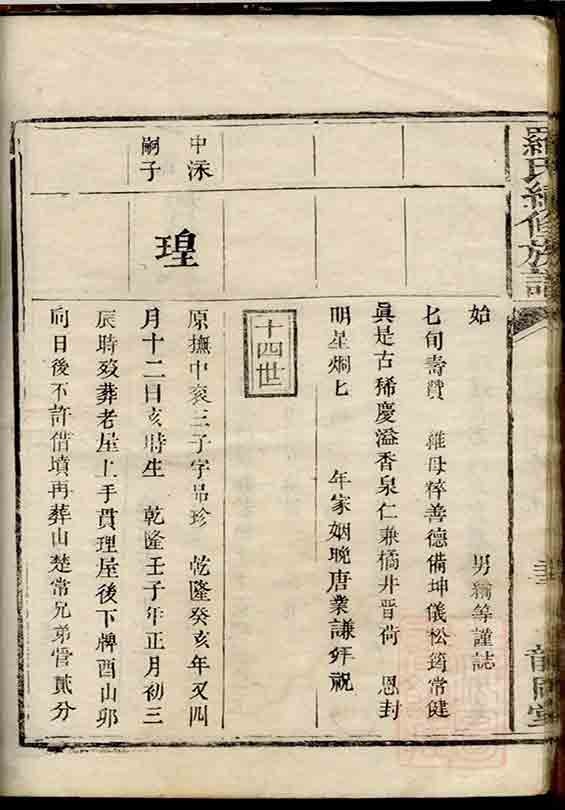 羅氏續修族譜
始
男 等謹誌
七旬壽贊 維母粹善德備坤儀松筠常健
眞是古稀慶溢香泉仁兼橘井晋荷 恩封
明星烱匕 年家姻晚唐業謙拜祝
十四世
中
嗣子
瑝
原撫中袞三子字品珍 乾隆癸亥年又四
月十二日亥時生 乾隆壬子年正月初三
辰時歿葬老屋上手貫理屋後下牌酉山卯
向日後不許借墳再葬山楚常兄弟管貳分